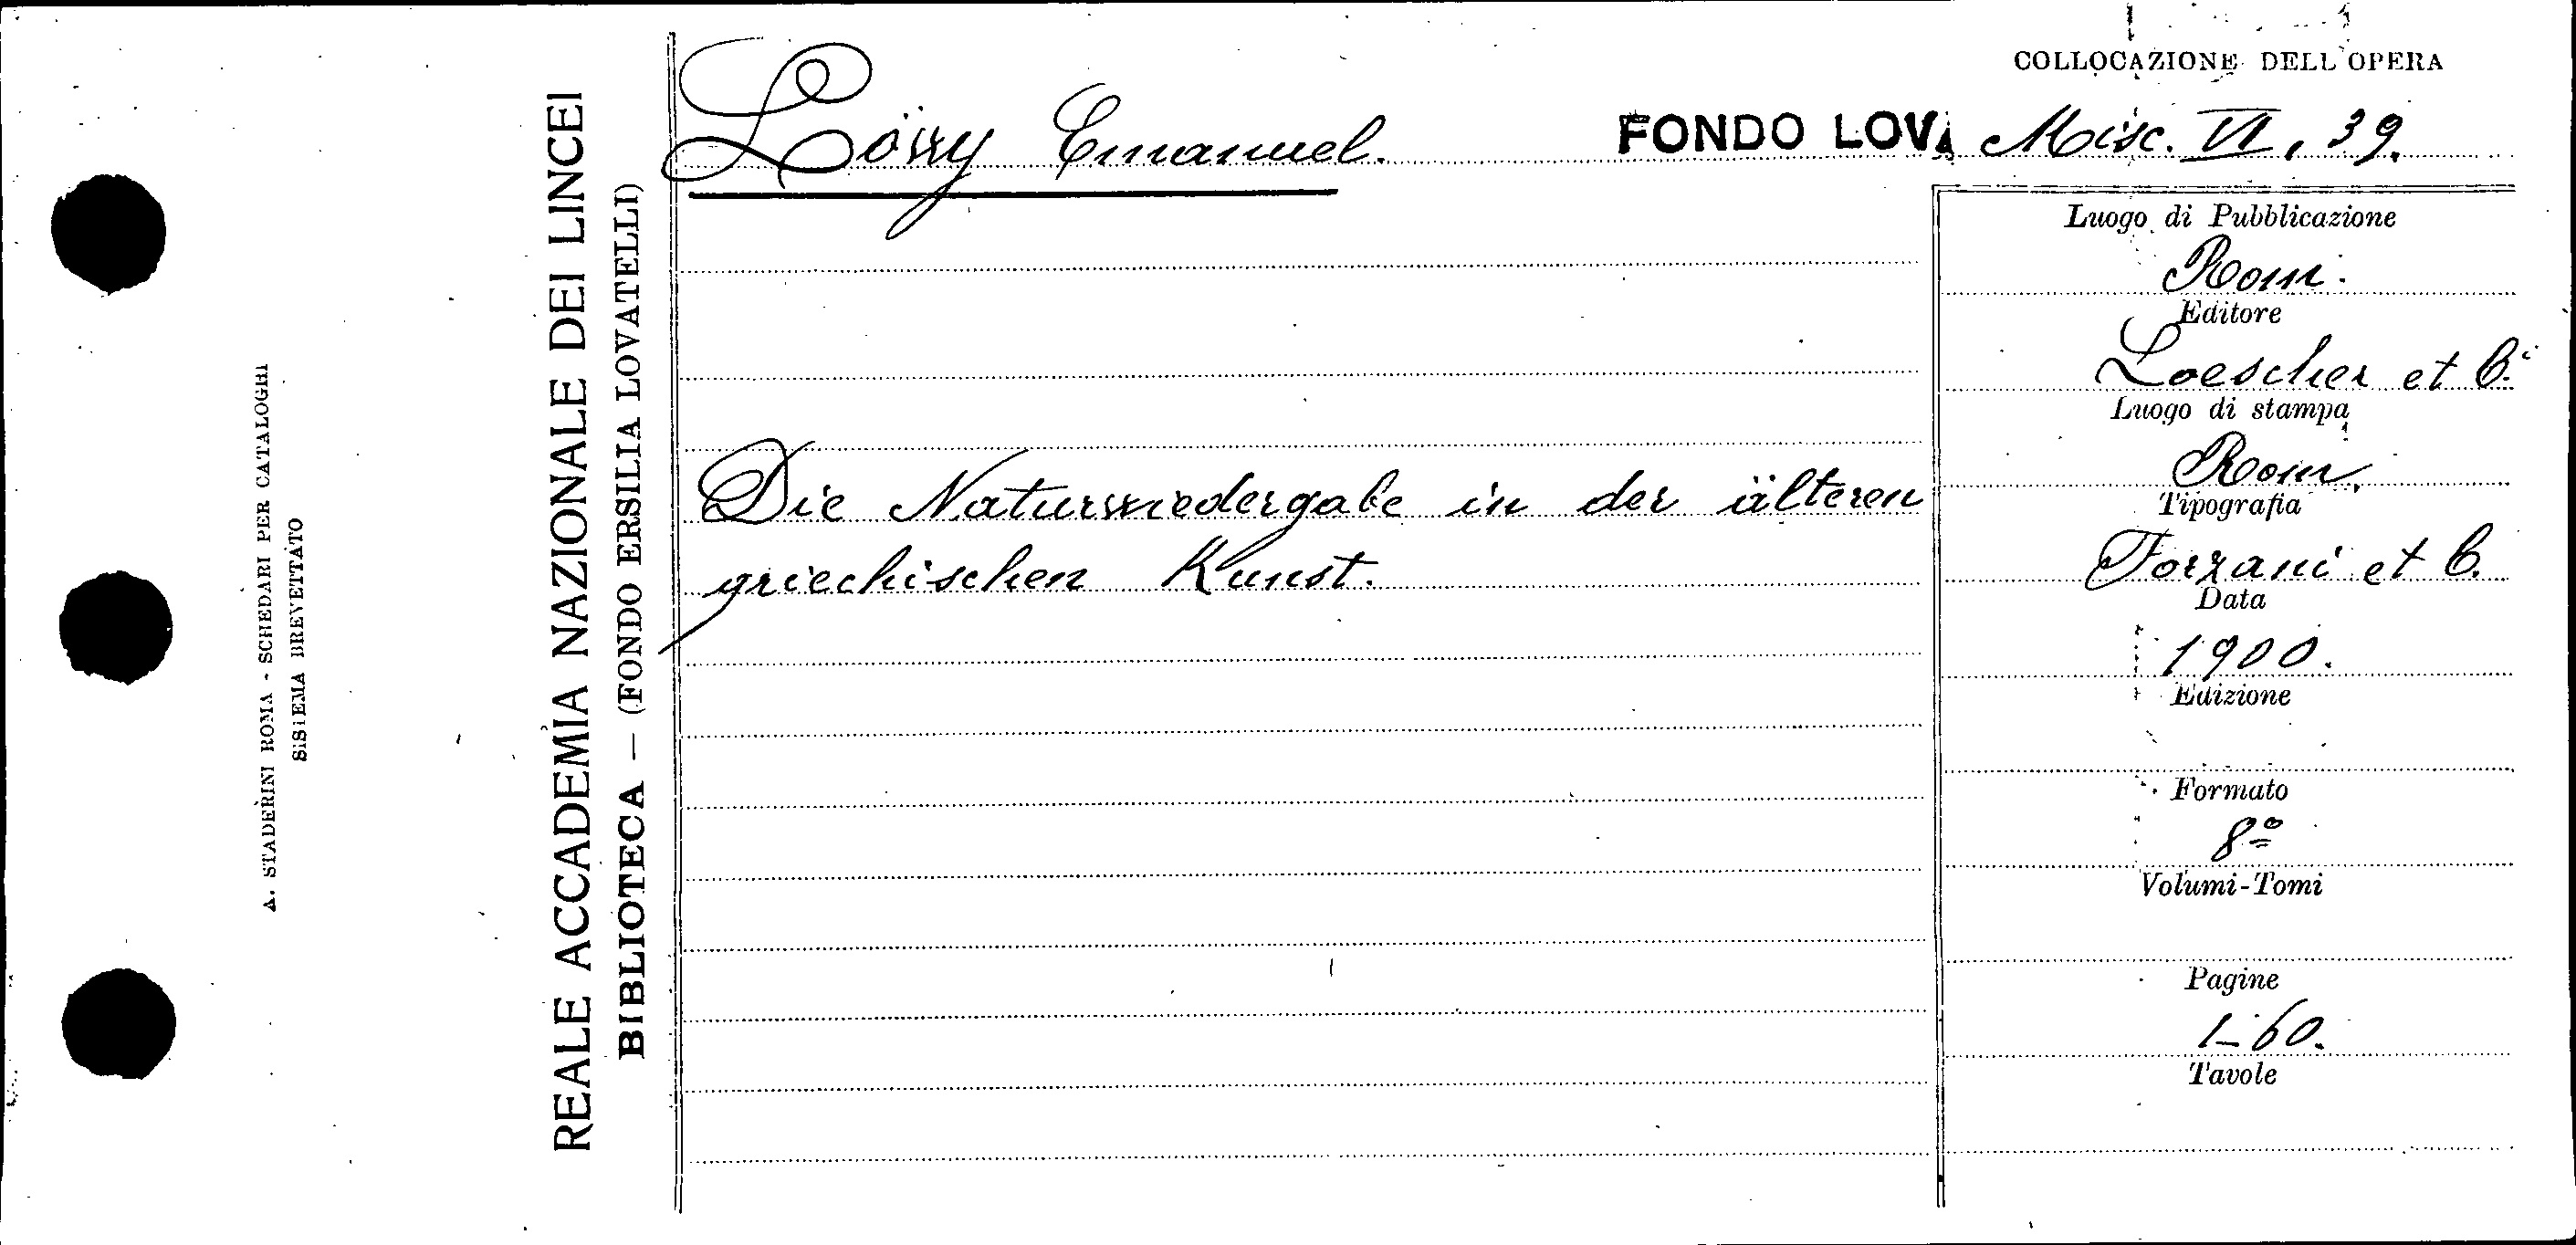 COLLOCAZIONE DELL'OPERA
Löwy Emanuel.
FONDO LOV. Misc. VI, 39.
Die Naturwiedergabe in der älteren
griechischen Kunst.
Luogo di Pubblicazione
Rom.
Editore
Loescher et C.
Luogo di stampa
Rom.
Tipografia
Forzani et C.
Data
1900.
Edizione
Formato
8º
Volumi-Tomi
Pagine
1-60.
Tavole
REALE ACCADEMIA NAZIONALE DEI LINCEI
BIBLIOTECA — (FONDO ERSILIA LOVATELLI)
A. STADERINI ROMA - SCHEDARI PER CATALOGHI
SISTEMA BREVETTATO